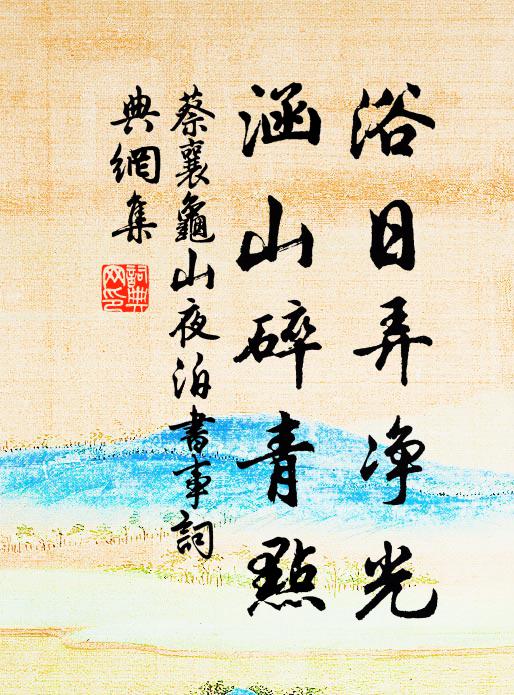 浴日弄净光
涵山碎青點
蔡襄龜山夜泊書事詞
典網集
詞典网印